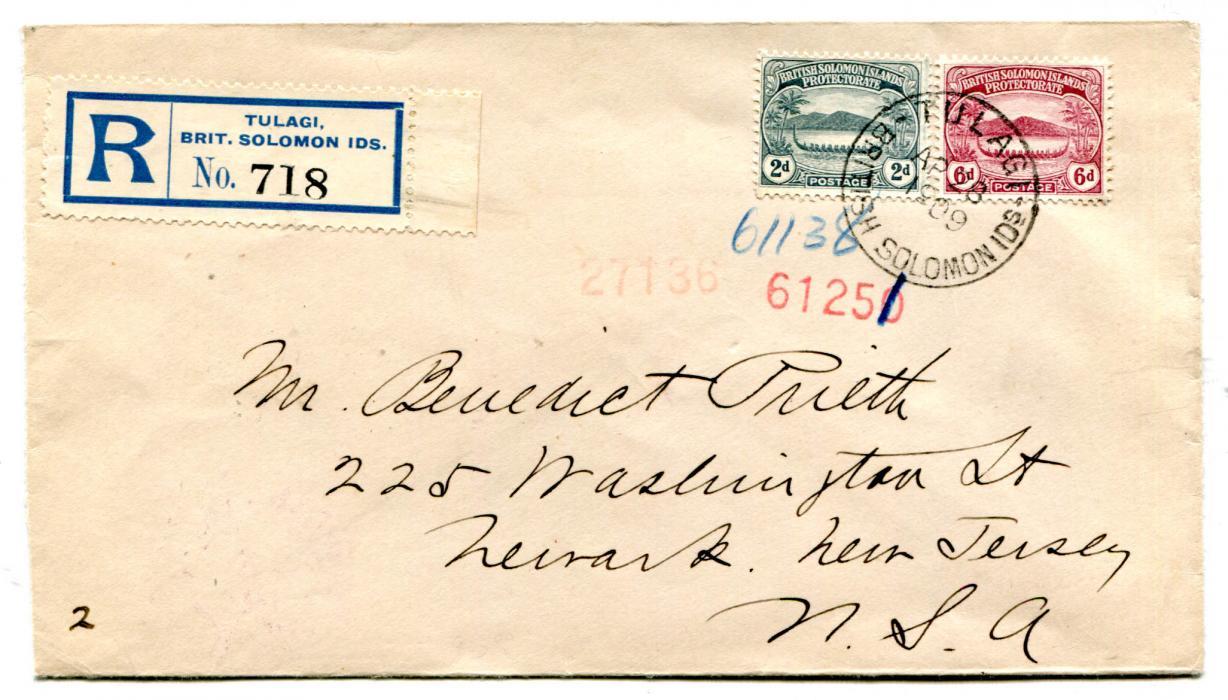 R
TULAGI,
BRIT. SOLOMON IDS.
No. 718
BRITISH SOLOMON ISLANDS
PROTECTORATE
2d 2d
POSTAGE
BRITISH SOLOMON ISLANDS
PROTECTORATE
6d 6d
POSTAGE
TULAGI
AP
909
BRITISH SOLOMON IDS
61138
27136 61250
Mr. Benedict Prieth
225 Washington St
Newark. New Jersey
U. S. A
2